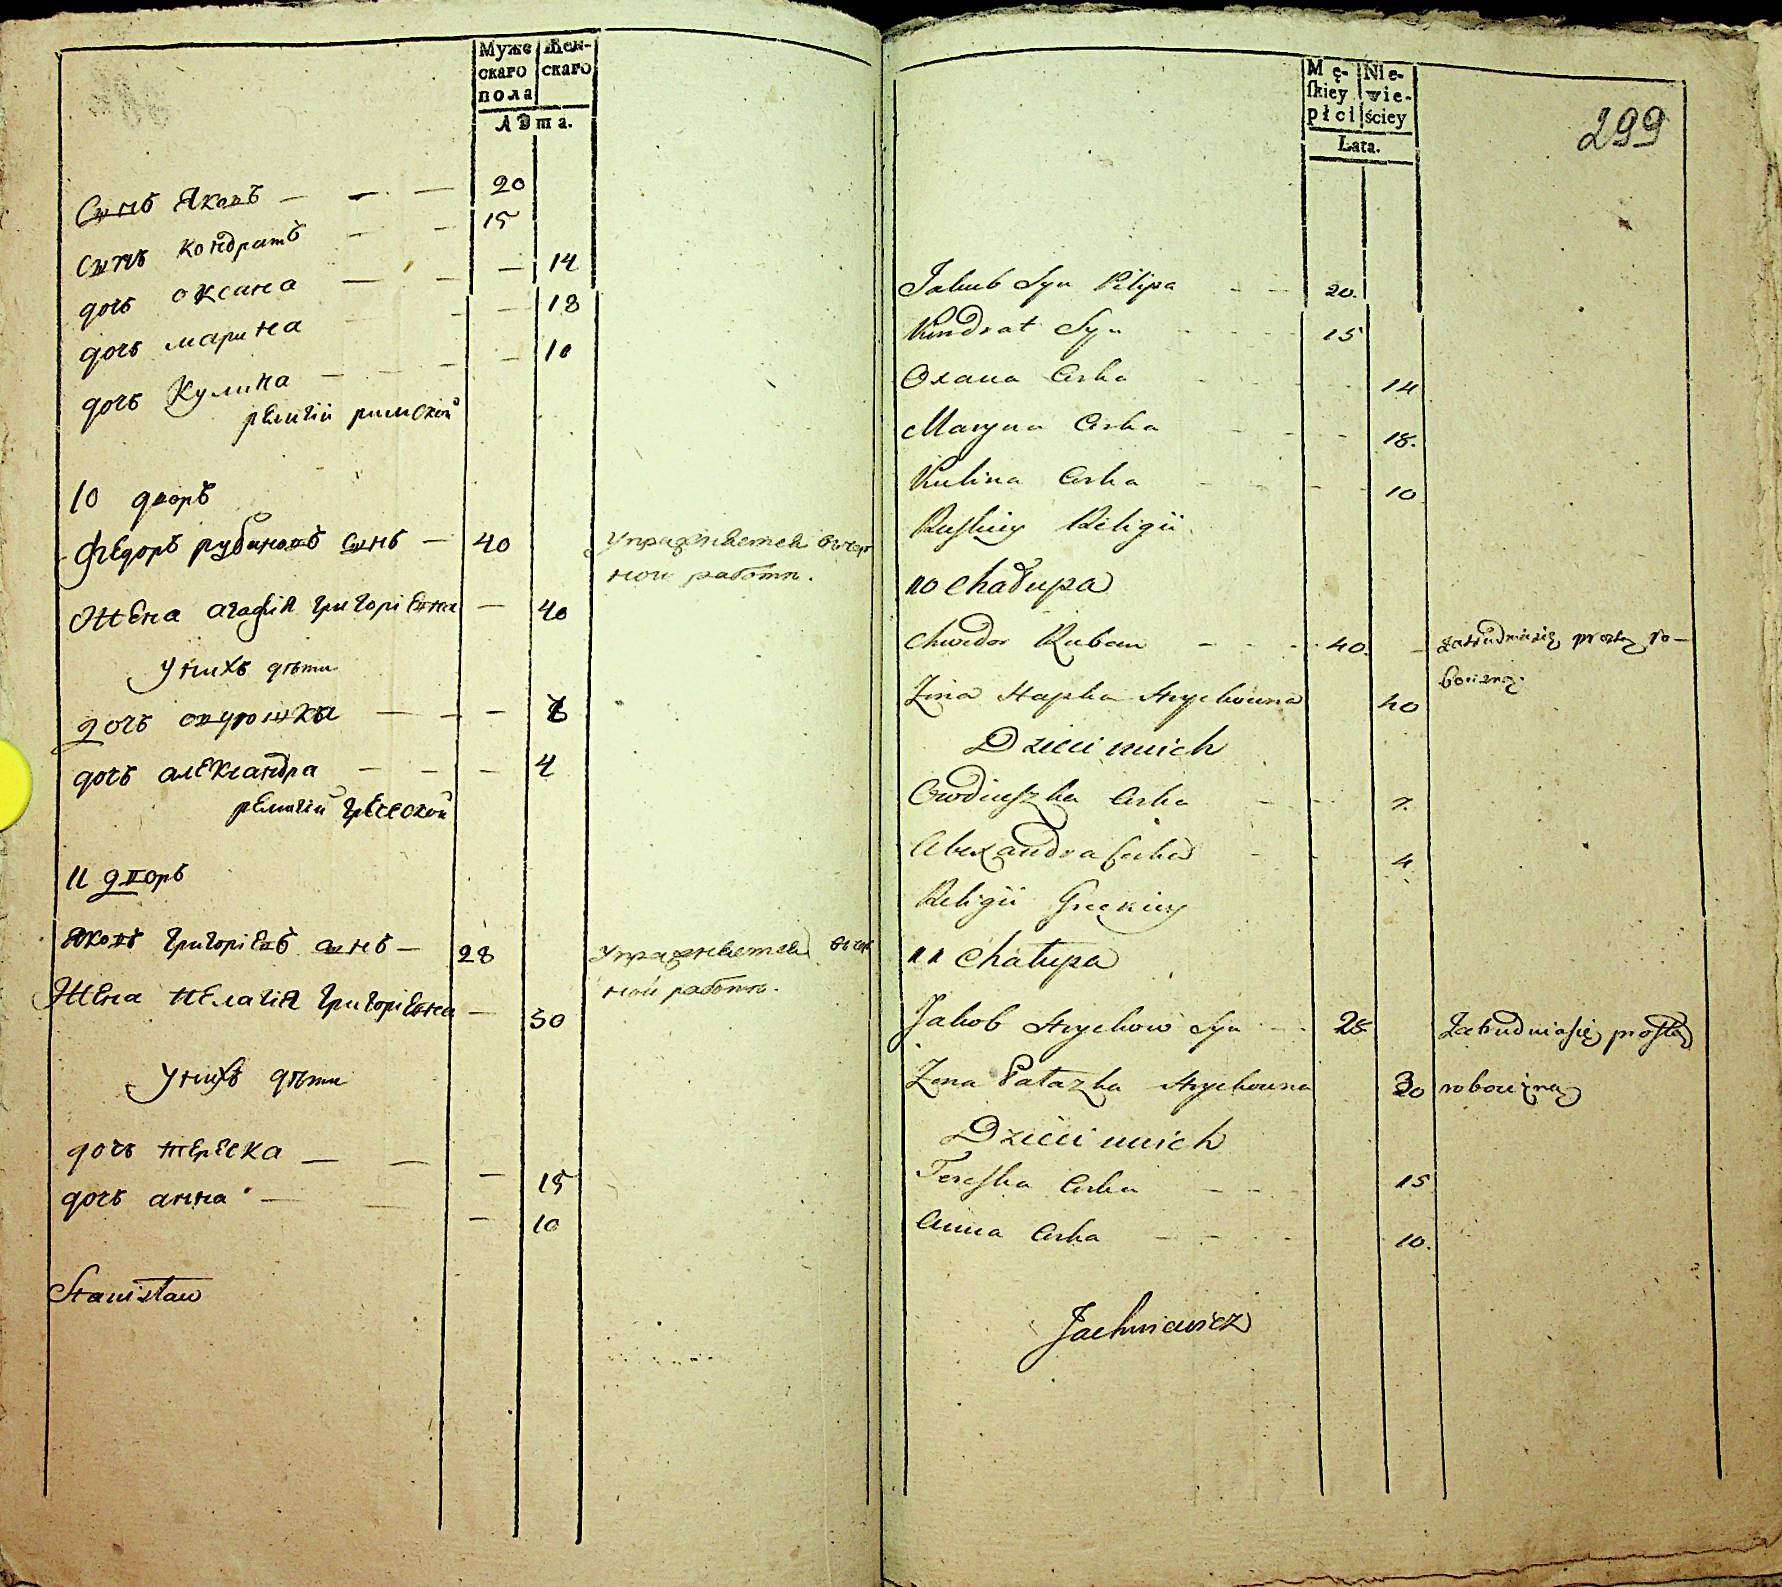 Муже Жен-
скаго скаго
пола
Лѣта.
Сынъ Яковъ — — — 20
сынъ Кондратъ — - 15
дочь оксана — — — 14
дочь марина — - — 18
дочь Кулина — — - — 10
религіи римской
10 дворъ
Федоръ рубановъ сынъ — 40 упражняется въ чер
ной работѣ.
Жена агафія григоріевна — 40
у нихъ дѣти
дочь овдюшка — — — 7
дочь александра — — — 4
религіи греческой
11 дворъ
Яковъ григоріевъ сынъ — 28 упражняется въ чер
ной работѣ.
Жена Пелагія григоріевна — 30
у нихъ дѣти
дочь тереска — — — 15
дочь анна — — — 10
Stanisław
Mę- Nie-
ſkiey wie-
płci ściey
Lata.
299
Jakub Syn Pilipa - - 20.
Kondrat Syn - - - 15
Oxana Corka - - - 14
Maryna Corka - - - 18.
Kulina Corka - - - 10
Ruskiey Religii
10 Chałupa
Chwedor Ruban - - - 40. - zatrudnia się prostą ro-
bocizną.
Żona Hapka Hrychowna 40
Dzieci unich
Owdiuszka Corka - - 7.
Alexandra Corka - - 4.
Religii Greckiey
11 Chałupa
Jakob Hrychow Syn - - 28 Zatrudnia się prostą
Żona Pałazka Hrychowna 30 robocizną
Dzieci unich
Tereska Corka - - 15
Anna Corka - - - 10.
Jachniewicz